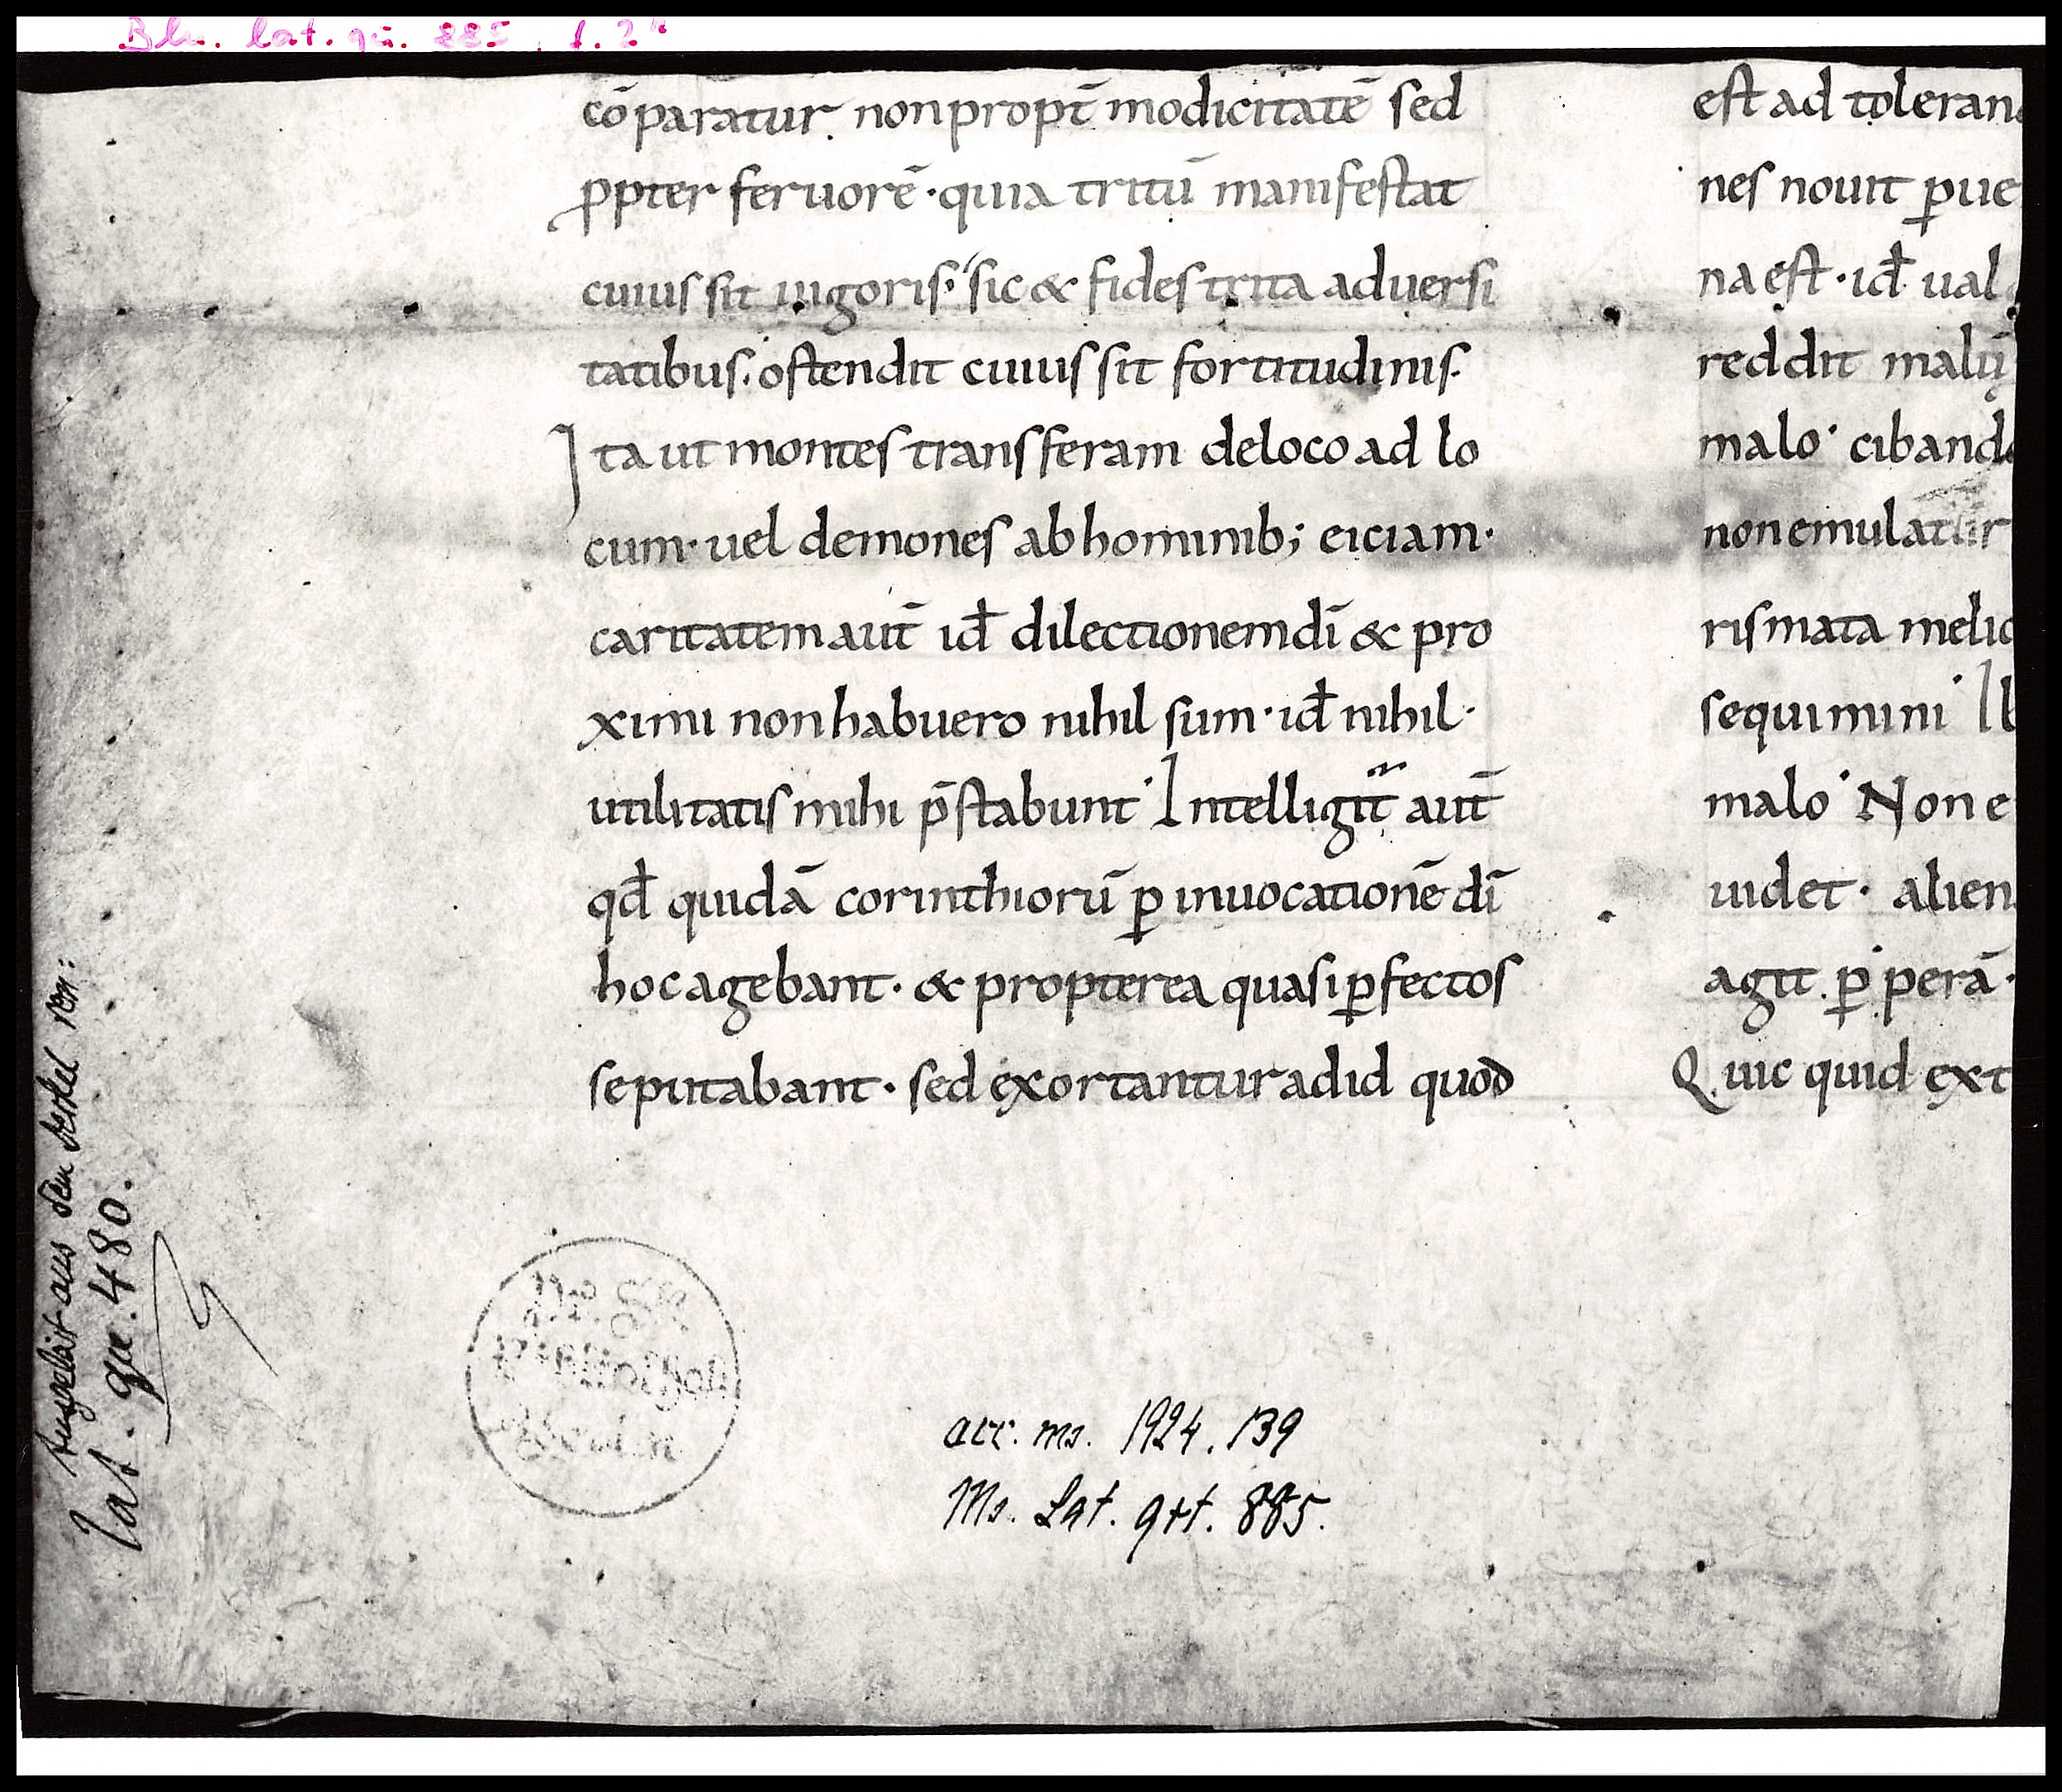 Bln. lat. qu. 885, f. 2v
cō paratur. non propt̄ modicitatē sed
ꝓpter feruorē · quia tritū manifestat
cuius sit uigoris · sic & fides trita aduersi
tatibus · ostendit cuius sit fortitudinis ·
Ita ut montes transferam de loco ad lo
cum · uel demones ab hominib; eiciam ·
caritatem aut̄ id̄ dilectionem dī & pro
ximi non habuero nihil sum · id̄ nihil ·
utilitatis mihi p̄stabunt · Intelligit̄ aut̄
qd̄ quidā corinthiorū ꝑ inuocationē dī
hoc agebant · & propterea quasi ꝑfectos
se putabant · sed exortantur ad id quod
est ad toleran
nes nouit ꝑue
na est · id̄ ual
reddit malū
malo · ciband
non emulatur
rismata melio
sequimini · Ib
malo · Non e
uidet · alien
agit ꝑ perā ·
Quic quid ext
Ausgelöst aus dem Deckel von:
lat. qu. 480.
acc. ms. 1924. 139
Ms. Lat. qrt. 885.